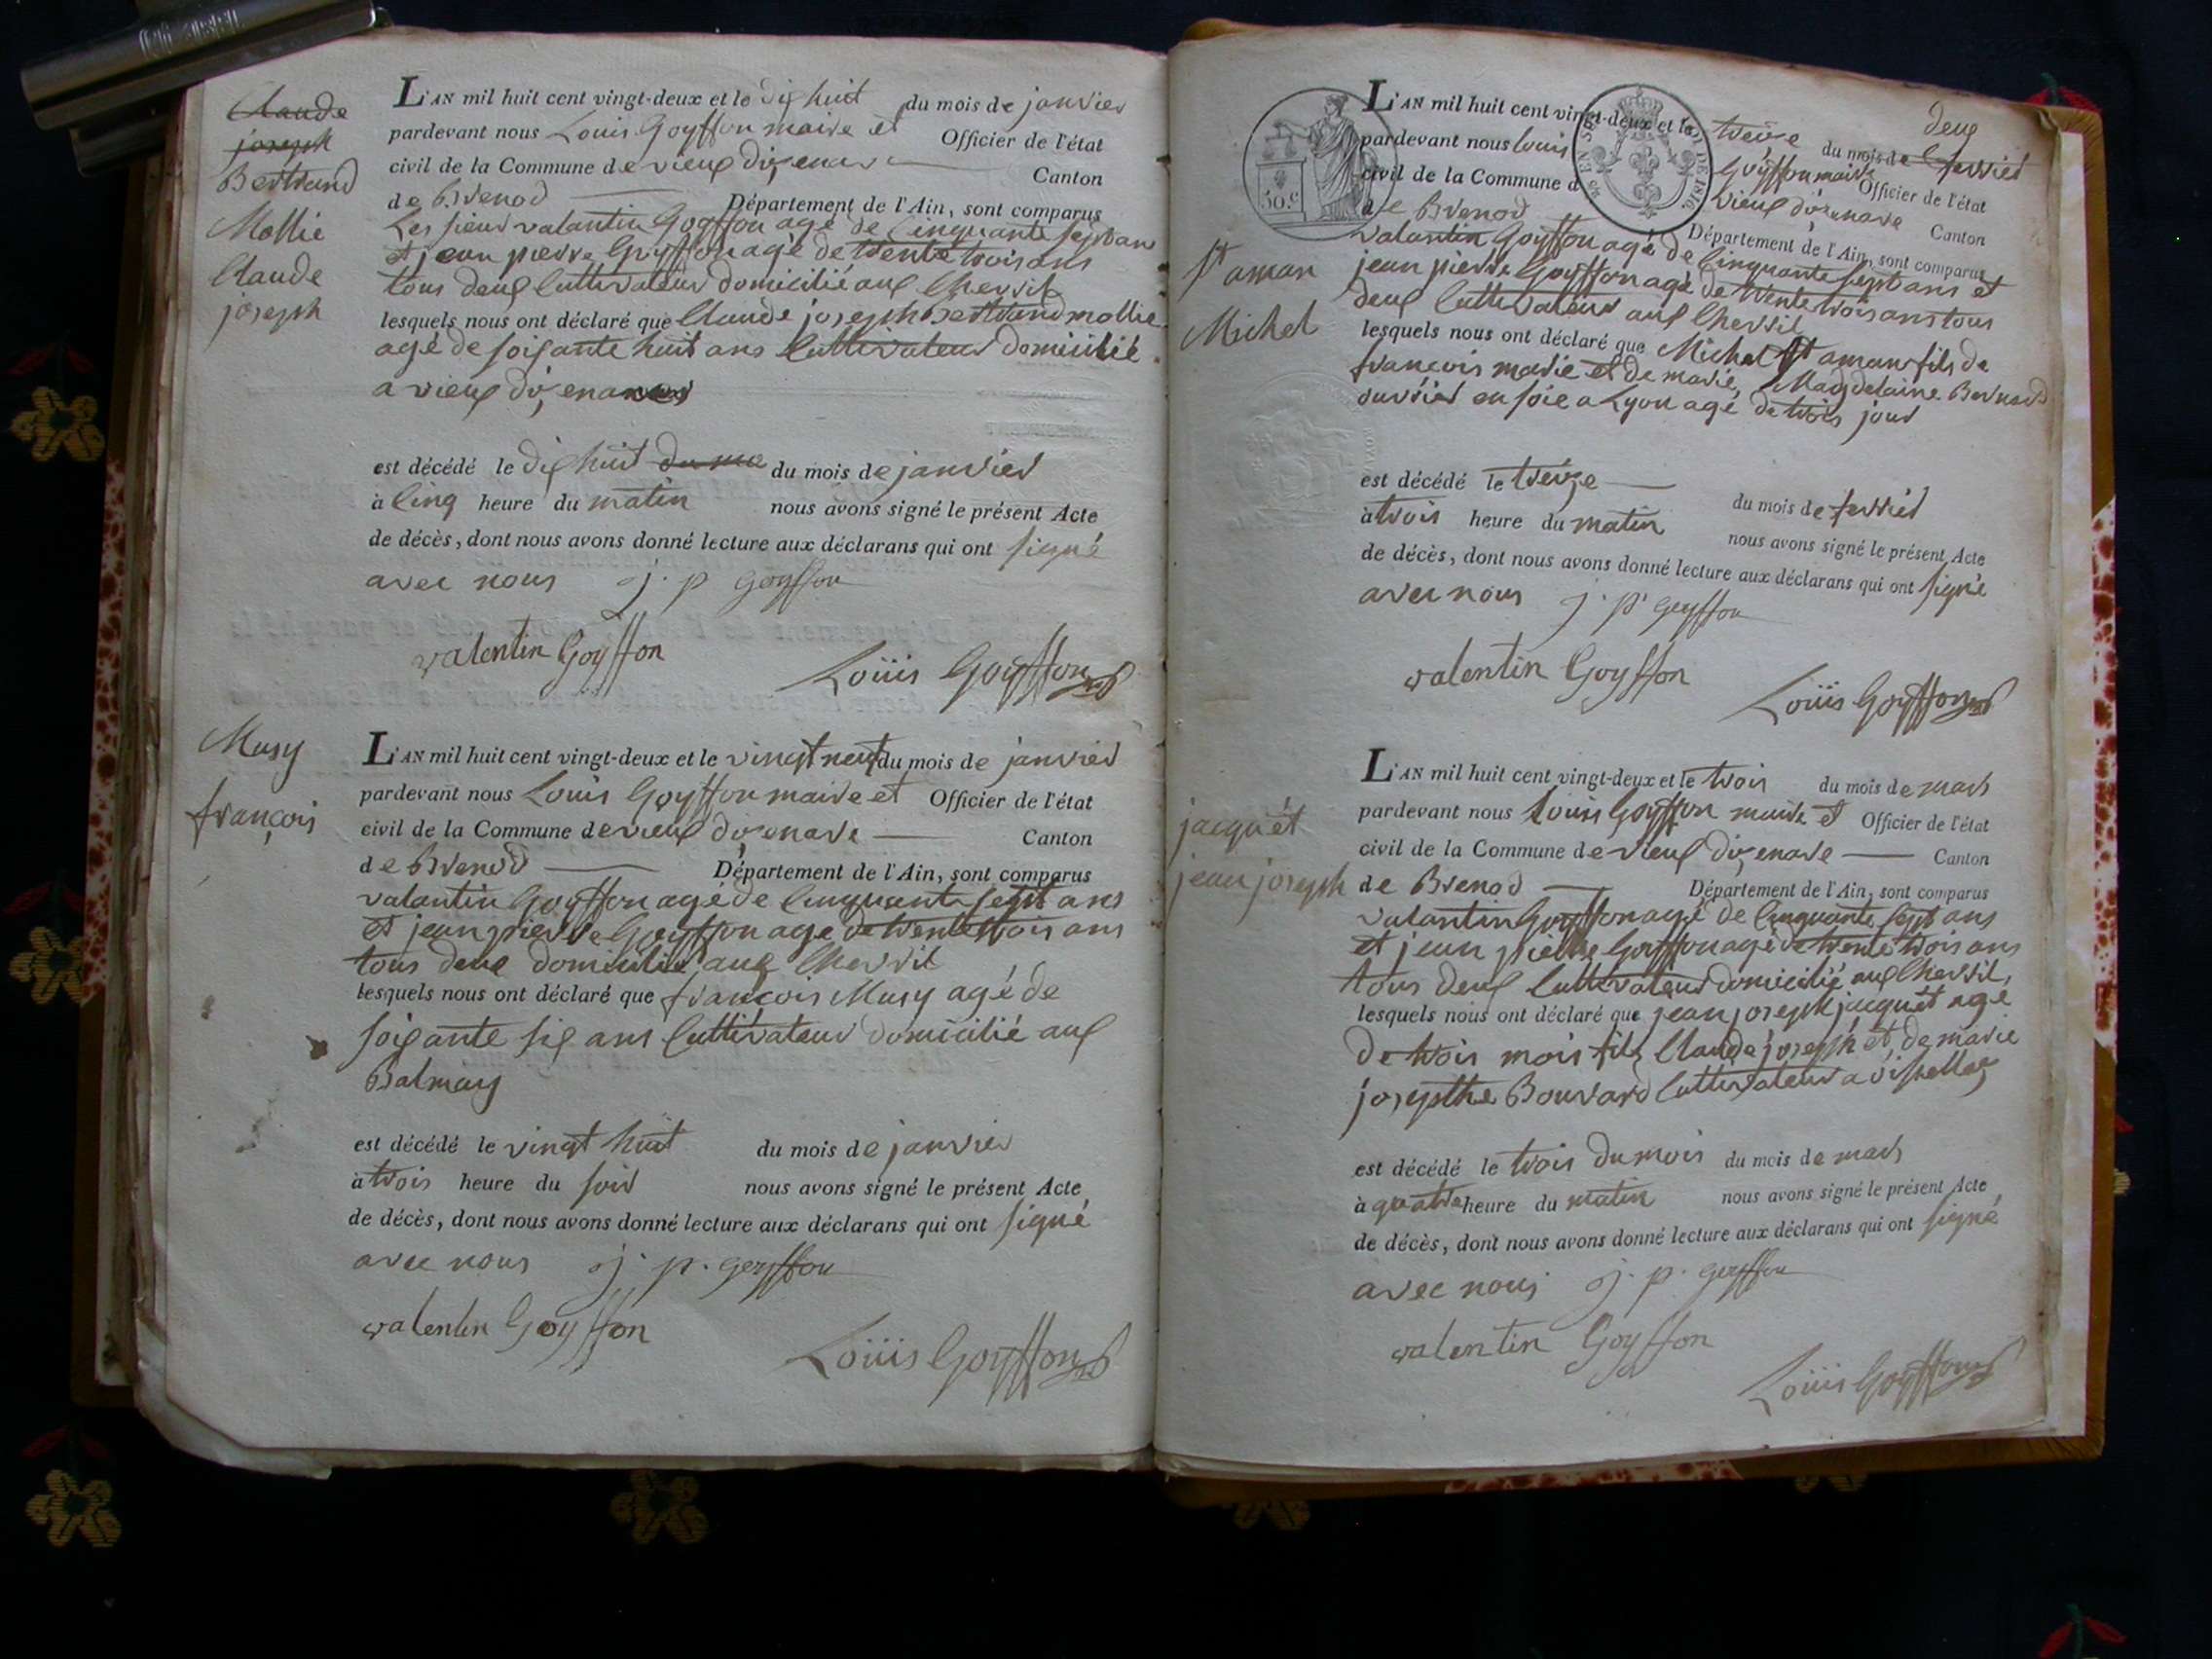 Claude
joseph
Bertrand
Mollie
Claude
joseph
L'AN mil huit cent vingt-deux et le dix huit du mois de janvier
pardevant nous Louis Goyffon maire et Officier de l'état
civil de la Commune de vieux d'izenave Canton
de Brenod Département de l'Ain, sont comparus
Les sieur valantin Goyffon agé de cinquante sept ans
et jean pierre Goyffon agé de trente trois ans
tous deux Cultivateur domicilié aux Chevril
lesquels nous ont déclaré que Claude joseph Bertrand mollie
agé de soixante huit ans Cultivateur domicilié
a vieux d'izenave
est décédé le dix huit du mo du mois de janvier
à Cinq heure du matin nous avons signé le présent Acte
de décès, dont nous avons donné lecture aux déclarans qui ont signé
avec nous j. p goyffon
valentin Goyffon
Loüis Goyffon
Musy
françois
L'AN mil huit cent vingt-deux et le vingt neuf du mois de janvier
pardevant nous Louis Goyffon maire et Officier de l'état
civil de la Commune de vieux d'izenave Canton
de Brenod Département de l'Ain, sont comparus
valantin Goyffon agé de Cinquante sept ans
et jean pierre Goyffon agé de trente trois ans
tous deux domicilié aux Chevril
lesquels nous ont déclaré que françois Musy agé de
soixante six ans Cultivateur domicilié aux
Balmay
est décédé le vingt huit du mois de janvier
à trois heure du soir nous avons signé le présent Acte
de décès, dont nous avons donné lecture aux déclarans qui ont signé
avec nous j. p. goyffon
valentin Goyffon
Loüis Goyffon
50.c
St aman
Michel
L'AN mil huit cent vingt-deux et le treize deux du mois de fevrier
pardevant nous louis Goyffon maire Officier de l'état
civil de la Commune d vieux d'izenave Canton
de Brenod Département de l'Ain, sont comparus
valantin Goyffon agé de Cinquante sept ans et
jean pierre Goyffon agé de trente trois ans tous
deux Cultivateur aux Chevril
lesquels nous ont déclaré que Michel St aman fils de
françois marie et de marie Magdelaine Bernard
ouvrier en soie a Lyon agé de trois jour
est décédé le treize du mois de fevrier
à trois heure du matin nous avons signé le présent Acte
de décès, dont nous avons donné lecture aux déclarans qui ont signé
avec nous j. p. goyffon
valentin Goyffon
Loüis Goyffon
jacquét
jean joseph
L'AN mil huit cent vingt-deux et le trois du mois de mars
pardevant nous Louis Goyffon maire et Officier de l'état
civil de la Commune de vieux d'izenave Canton
de Brenod Département de l'Ain, sont comparus
valantin Goyffon agé de Cinquante sept ans
et jean pierre Goyffon agé de trente trois ans
tous deux Cultivateur domicilié aux Chevril,
lesquels nous ont déclaré que jean joseph jacquét agé
de trois mois fils Claude joseph et de marie
josepthe Bouvard Cultivateur a
est décédé le trois du mois du mois de mars
à quatre heure du matin nous avons signé le présent Acte
de décès, dont nous avons donné lecture aux déclarans qui ont signé
avec nous j. p. goyffon
valentin Goyffon
Loüis Goyffon